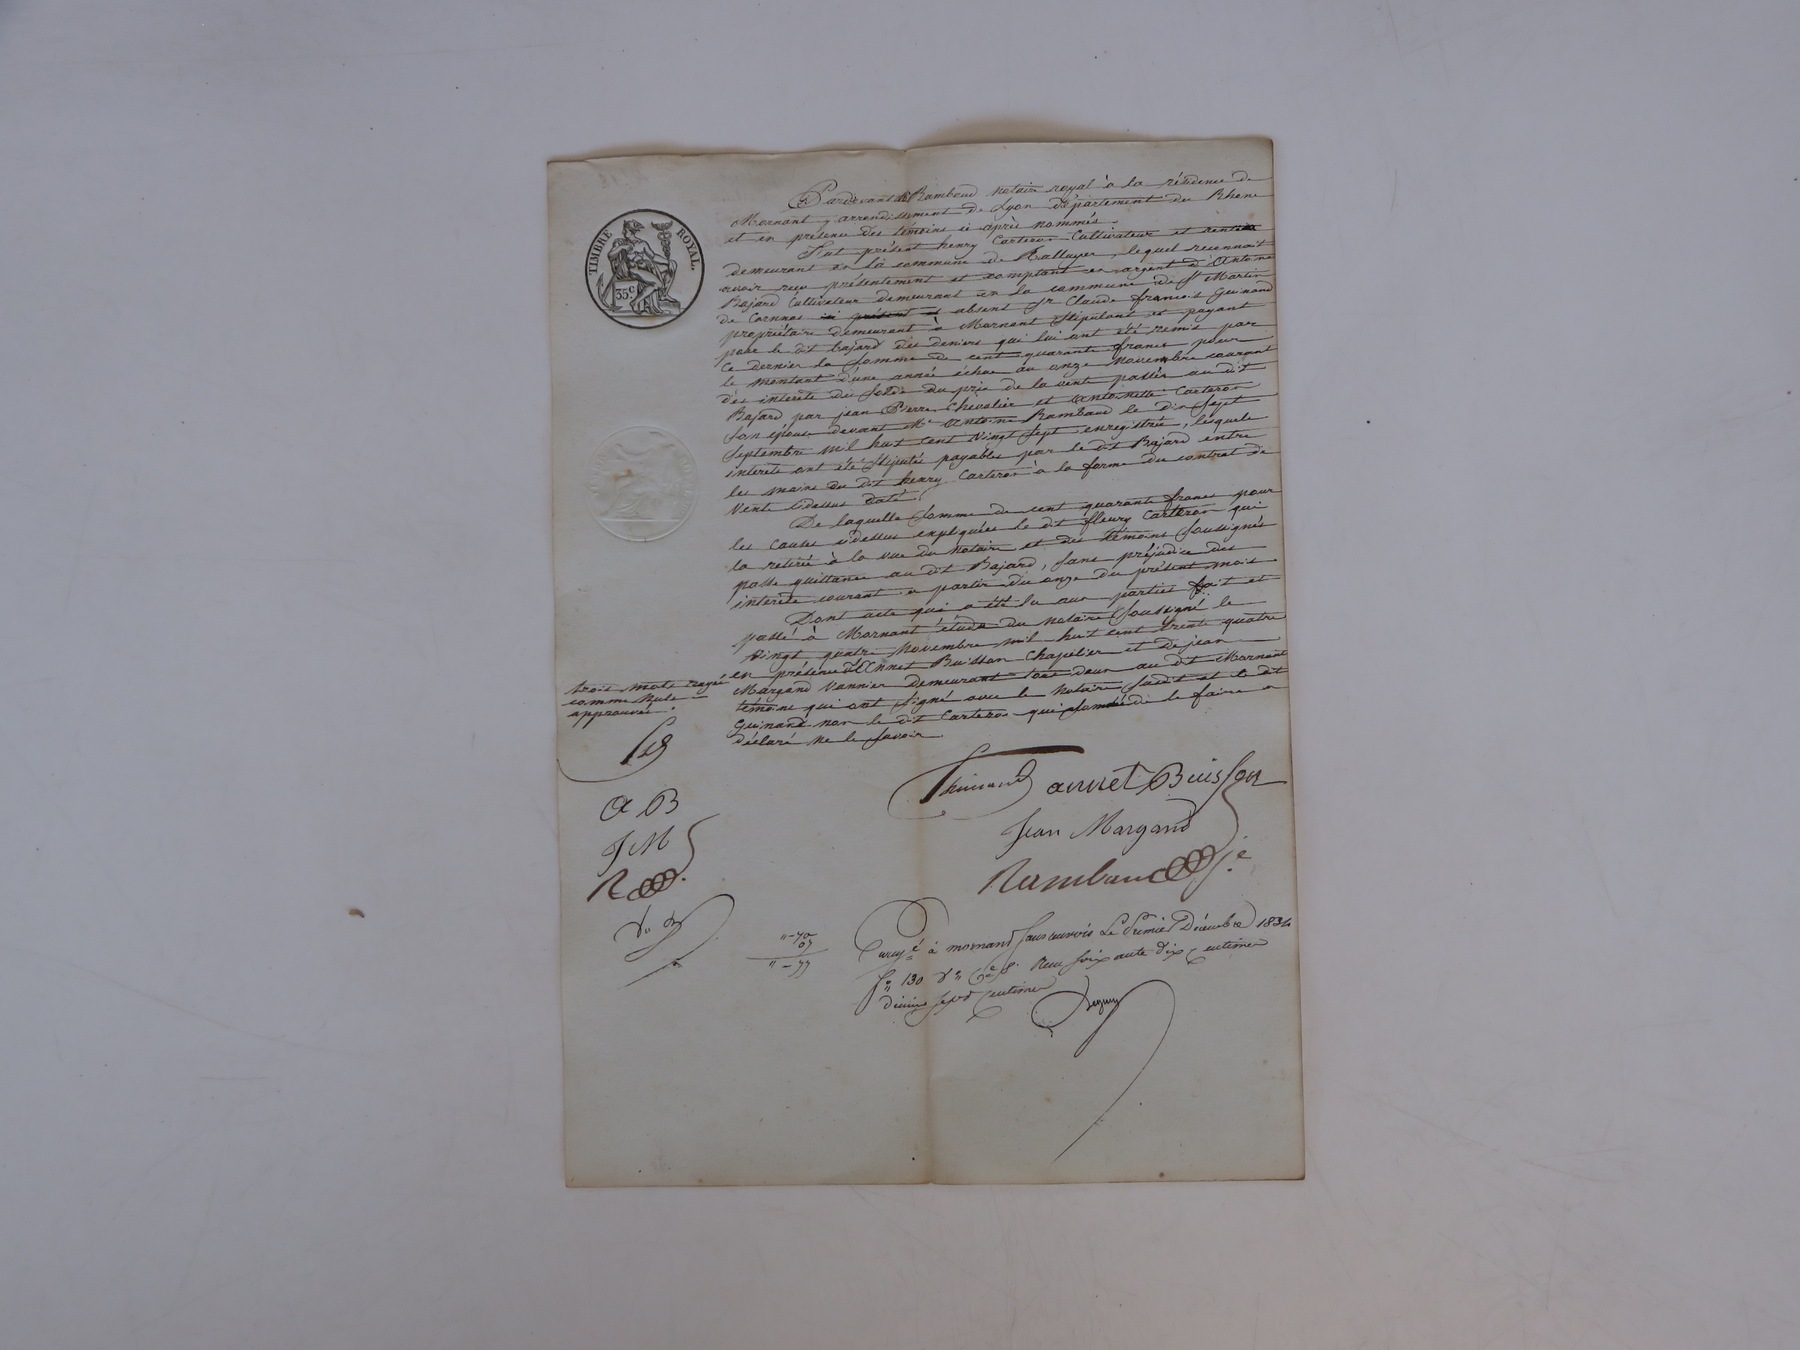 TIMBRE ROYAL.
35 c
Pardevant Me Rambaud notaire royal à la résidence de
Mornant, arrondissement de Lyon département du Rhone
et en présence des témoins ci après nommés.
Fut présent henry Carteron Cultivateur et rentier
demeurant en la commune de Talluyer, lequel reconnait
avoir reçu présentement et comptant en argent d'Antoine
Bajard Cultivateur demeurant en la commune de St Martin
de Cornas ici présent et absent Sr Claude françois Guinand
propriétaire demeurant à Mornant stipulant et payant
pour le dit bajard des deniers qui lui ont été remis par
ce dernier la somme de cent quarante francs pour
le montant d'une année échue au onze Novembre courant
des interets du solde du prix de la vente passée au dit
Bajard par jean Pierre Chevalier et antoinette Carteron
son épouse devant Me Antoine Rambaud le dix Sept
Septembre mil huit cent vingt Sept enregistrée, lesquels
interets ont été stipulés payables par le dit Bajard entre
les mains du dit henry Carteron à la forme du contrat de
vente cidessus daté.
De laquelle somme de cent quarante francs pour
les causes cidessus expliquées le dit fleury Carteron qui
la retirée à la vue du notaire et des témoins soussignés
passe quittance au dit Bajard, sans préjudice des
interets courant a partir du onze du présent mois
Dont acte qui a été lu aux parties fait et
passé à Mornant étude du notaire soussigné le
vingt quatre Novembre mil huit cent trente quatre
en présence d'Annet Buisson Chapelier et de jean
Margand Vannier demeurant tous deux au dit Mornant
témoins qui ont signé avec le notaire susdit et le dit
Guinand non le dit Carteron qui sommé de le faire a
déclaré ne le savoir.
trois mots rayés
comme nuls
approuvés.
A B
J M
R
Guinand annet Buisson
Jean Margand
Rambaud
"-70
07
"-77
Enregé à mornant sans renvois Le Premier Décembre 1834
fo 130 Vo Ce 8. Reçu soixante dix Centimes
dixime sept Centimes